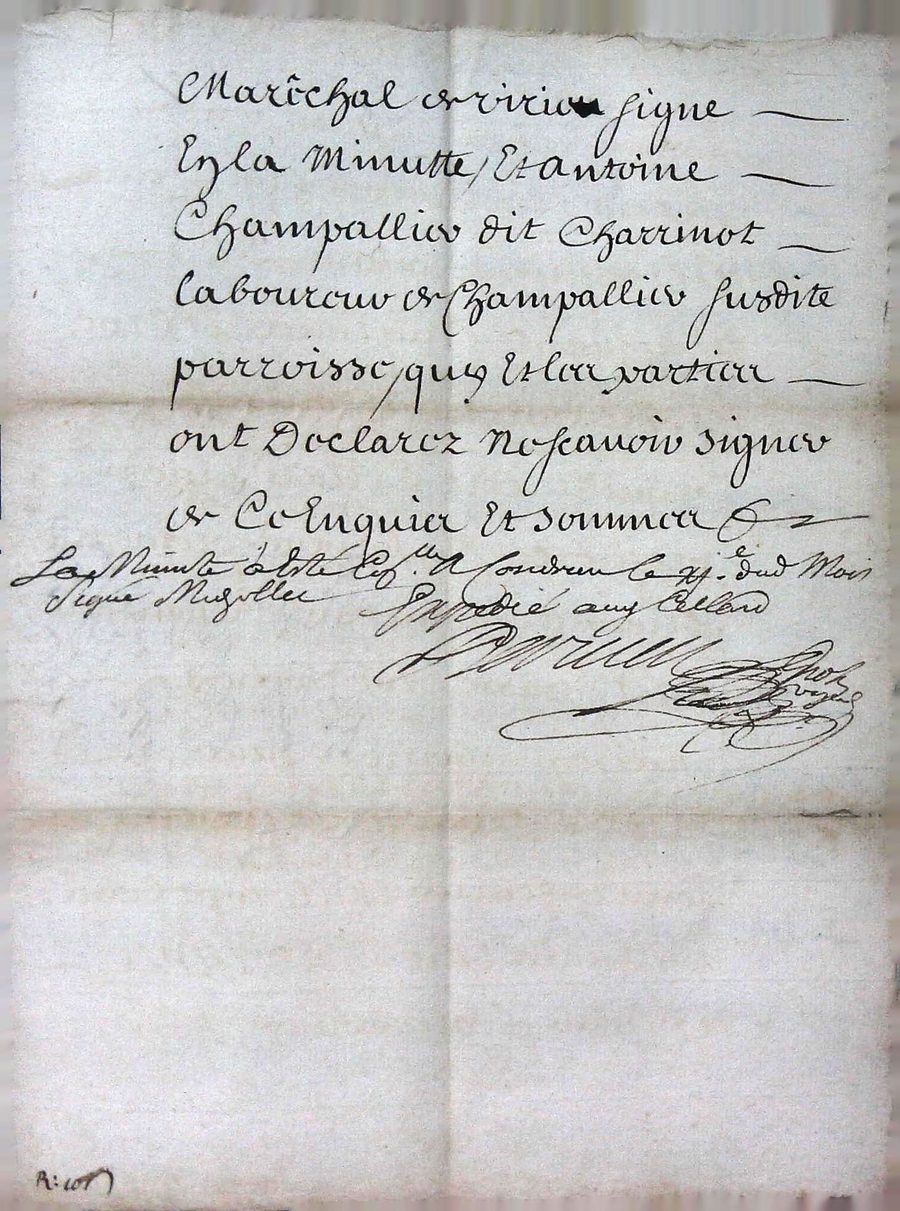 Maréchal de virieu signe
En la Minutte, Et antoine
Champallier dit Charrinot
laboureur de Champallier susdite
parroisse, quy Et les parties
ont Declarez ne scavoir signer
de Ce Enquis Et sommes &
La Minute a été Coll.ée A Condrieu le xj.e dud Mois
Signé Mezellet Expedié auz Cellard